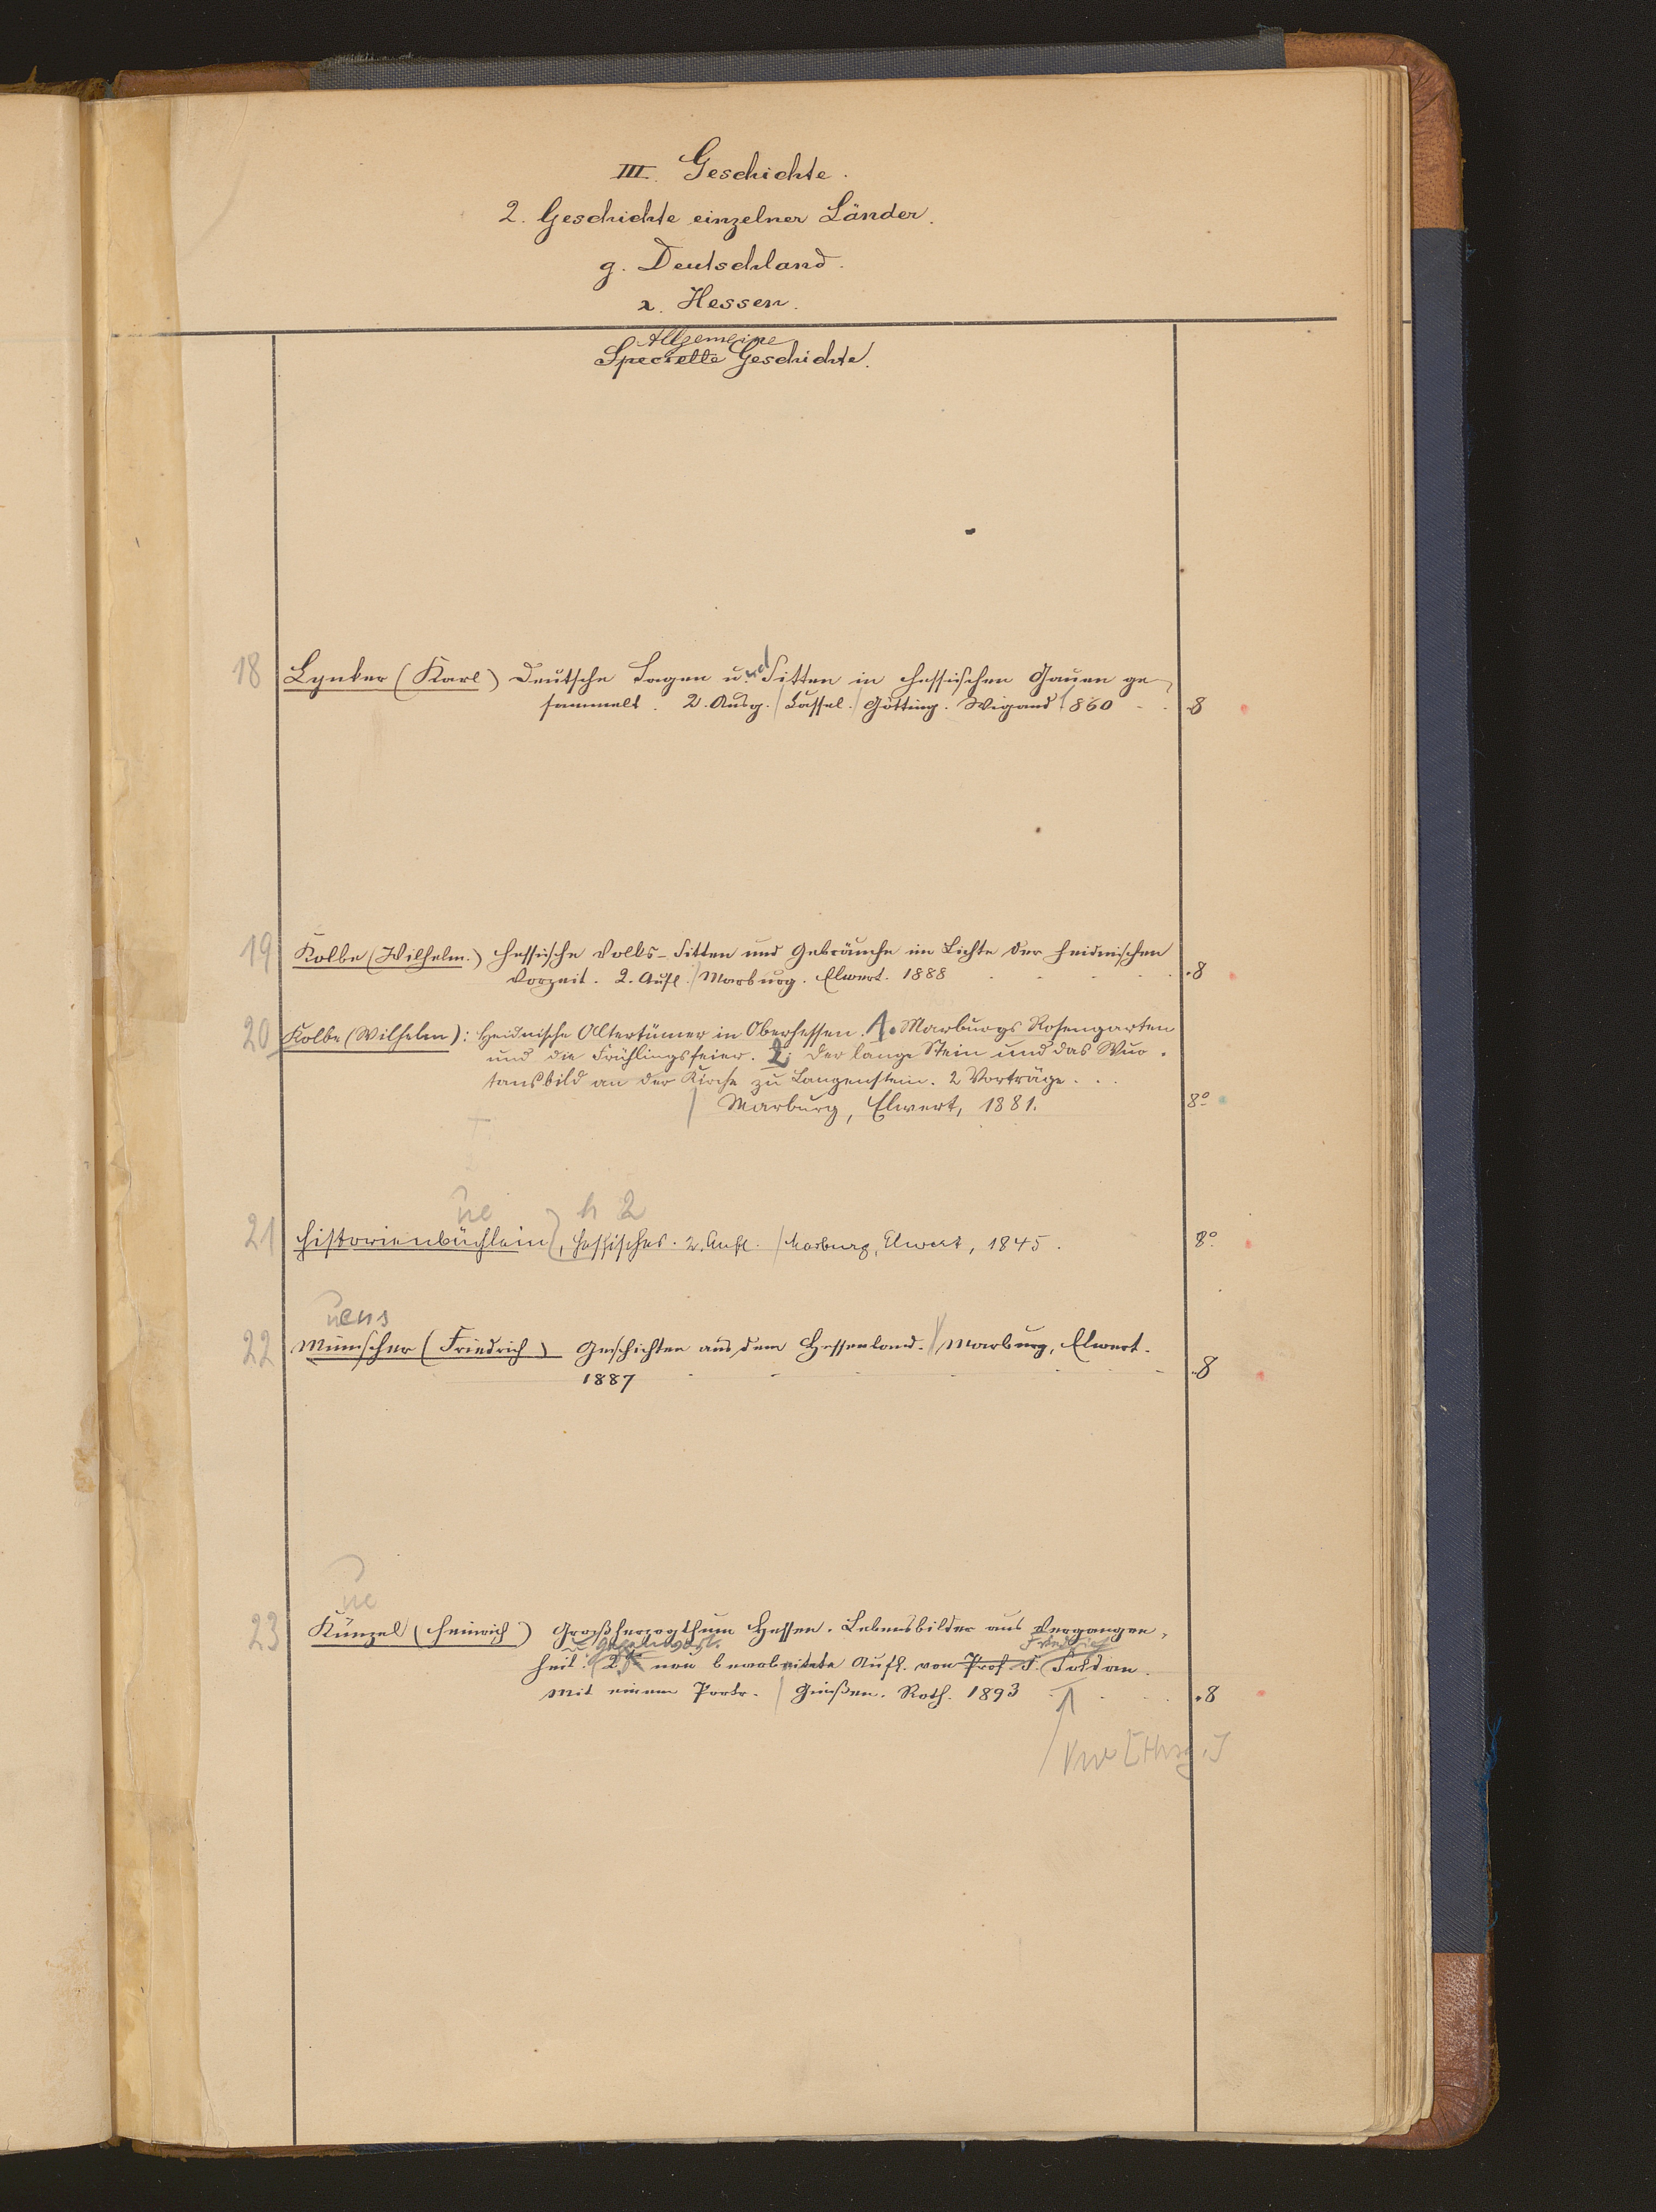 III. Geschichte.
2. Geschichte einzelner Länder.
g. Deutschland.
2. Hessen.
Allgemeine
Specielle Geschichte.
18 Lynker (Karl) Deutsche Sagen und Sitten in hessischen Gauen ge-
sammelt. 2. Ausg. / Cassel. / Götting. Wigand 1860 8
19 Kolbe (Wilhelm.) Hessische Volks-Sitten und Gebräuche im Lichte der heidnischen
Vorzeit. 2. Aufl. / Marburg. Elwert. 1888 8
20 Kolbe (Wilhelm): Heidnische Altertümer in Oberhessen. 1. Marburgs Rosengarten
und die Frühlingsfeier. 2. Der lange Stein und das Wuo-
tansbild an der Kirche zu Langenstein. 2 Vorträge.
/ Marburg, Elwert, 1881. 8°
ue h 2
21 Historienbüchlein, Hessisches. 2. Aufl. / Marburg, Elwert, 1845. 8°
uens
22 Münscher (Friedrich) Geschichten aus dem Hessenland. / Marburg, Elwert.
1887 8
ue
23 Künzel (Heinrich) Großherzogthum Hessen. Lebensbilder aus Vergangen-
u. Gegenwart. Friedrich
heit. 2te neu bearbeitete Aufl. von Prof. F. Soldan.
Mit einem Portr. / Gießen. Roth. 1893 8
[Hrsg.]